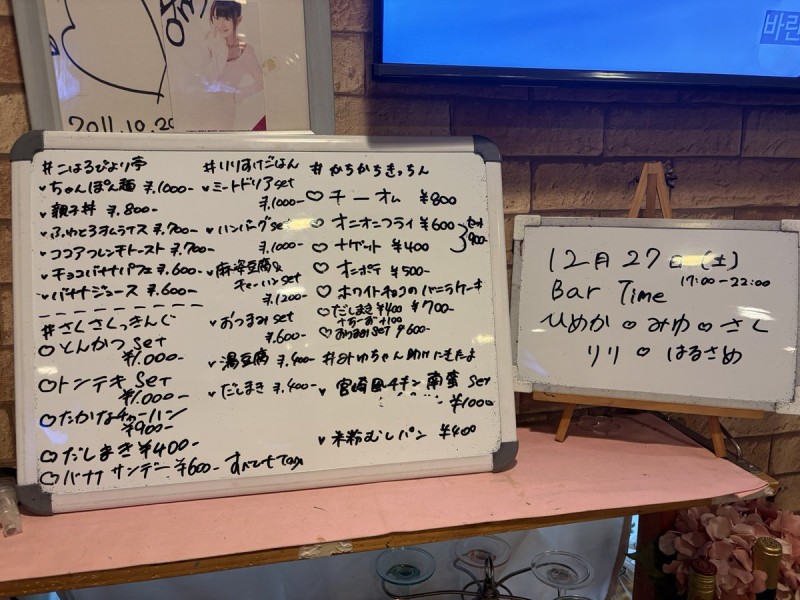 2011.10.20
바린
#こはるびより亭
ちゃんぽん麺 ¥.1000-
親子丼 ¥.800-
ふわとろオムライス ¥.700-
ココアフレンチトースト ¥.700-
チョコバナナパフェ ¥.600-
バナナジュース ¥.600-
#さくさくっきんぐ
とんかつ set
¥1000-
トンテキ set
¥1000-
たかなチャーハン
¥900-
だしまき ¥400-
バナナサンデー ¥600-
#りりすけごはん
ミートドリア set
¥.1000-
ハンバーグ set
¥.1000-
麻婆豆腐&
チャーハン set
¥.1200-
おつまみ set
¥.600-
湯豆腐 ¥.400-
だしまき ¥.400-
#かちかちきっちん
チーオム ¥800
オニオンフライ ¥600
ナゲット ¥400
セット
900-
オニポテ ¥500-
ホワイトチョコのバニラケーキ
¥700-
だしまき ¥400
+ちーお+100
おつまみ set ¥600-
#みゆちゃん助けにきたよ
宮崎風チキン南蛮 set
¥1000
米粉むしパン ¥400
12月27日(土)
17:00-22:00
Bar Time
ひめか ♡ みゆ ♡ さく
りり ♡ はるさめ